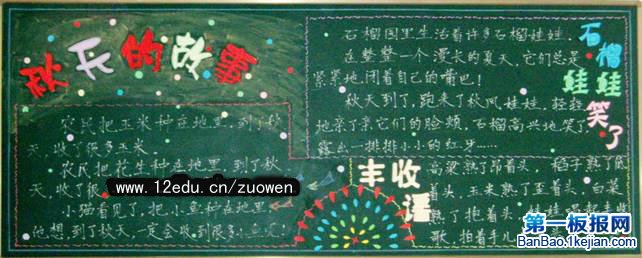 秋天的故事
农民把玉米种在地里,到了秋
天,收了很多玉米。
农民把花生种在地里,到了秋
天,收了很
小猫看见了,把小鱼种在地里
他想,到了秋天,一定会收到很多小鱼
www.12edu.cn/zuowen
石榴娃娃笑了
石榴园里生活着许多石榴娃娃,
在整整一个漫长的夏天,它们总是
紧紧地闭着自己的嘴巴!
秋天到了,跑来了秋风娃娃,轻轻
地亲了亲它们的脸颊,石榴高兴地笑了,
露出一排排小小的红牙……
丰收语
高粱熟了昂着头,稻子熟了
着头,玉米熟了歪着头,白菜
熟了抱着头,
歌,拍着手儿
第一板报网
BanBao.1kejian.com